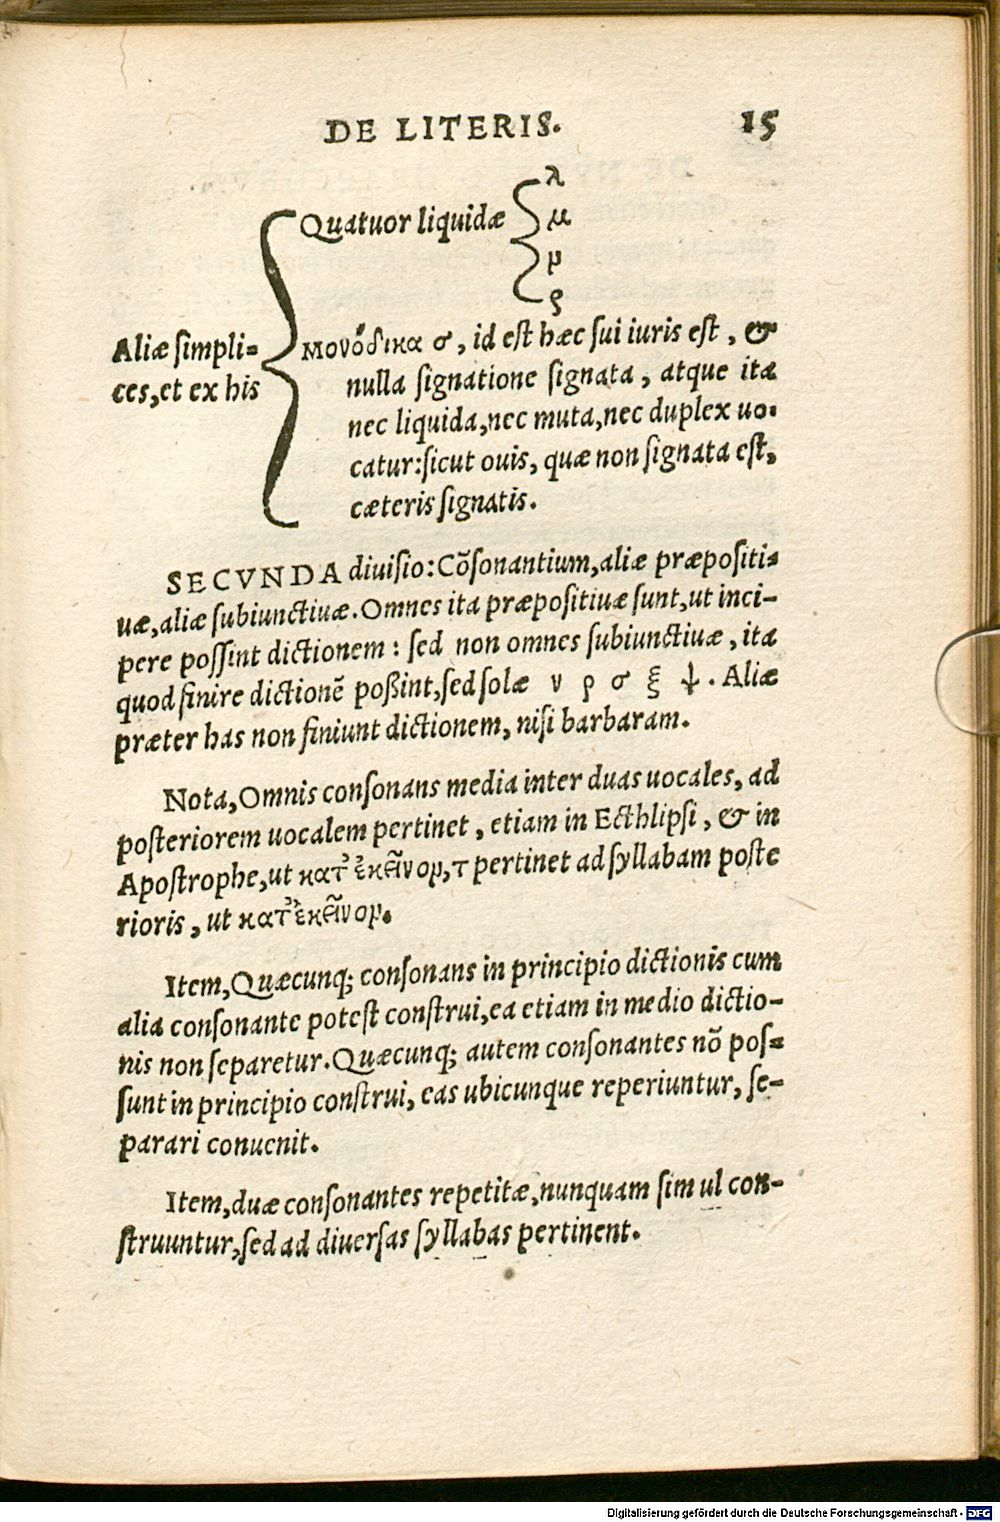 DE LITERIS. 15
Quatuor liquidæ
λ
μ
ν
ρ
Aliæ simpli-
ces, et ex his
μονόδικα σ, id est hæc sui iuris est, &
nulla signatione signata, atque ita
nec liquida, nec muta, nec duplex uo-
catur: sicut ouis, quæ non signata est,
cæteris signatis.
SECVNDA diuisio: Cõsonantium, aliæ præpositi-
uæ, aliæ subiunctiuæ. Omnes ita præpositiuæ sunt, ut inci-
pere possint dictionem: sed non omnes subiunctiuæ, ita
quod finire dictionẽ poßint, sed solæ ν ρ σ ξ ψ. Aliæ
præter has non finiunt dictionem, nisi barbaram.
Nota, Omnis consonans media inter duas uocales, ad
posteriorem uocalem pertinet, etiam in Ecthlipsi, & in
Apostrophe, ut κατ᾽ ἐκεῖνον, τ pertinet ad syllabam poste
rioris, ut κατ᾽ἐκεῖνον.
Item, Quæcunq; consonans in principio dictionis cum
alia consonante potest construi, ea etiam in medio dictio-
nis non separetur. Quæcunq; autem consonantes nõ pos-
sunt in principio construi, eas ubicunque reperiuntur, se-
parari conuenit.
Item, duæ consonantes repetitæ, nunquam simul con-
struuntur, sed ad diuersas syllabas pertinent.
Digitalisierung gefördert durch die Deutsche Forschungsgemeinschaft - DFG